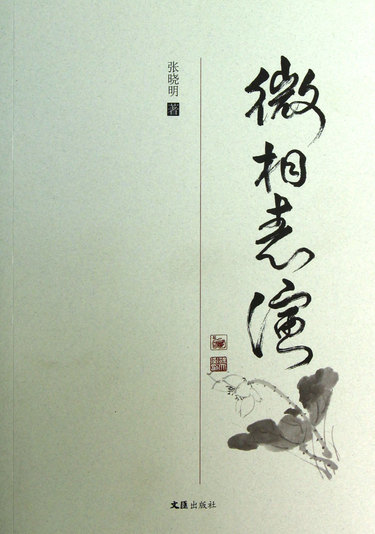 微相表演
张晓明 著
文匯出版社